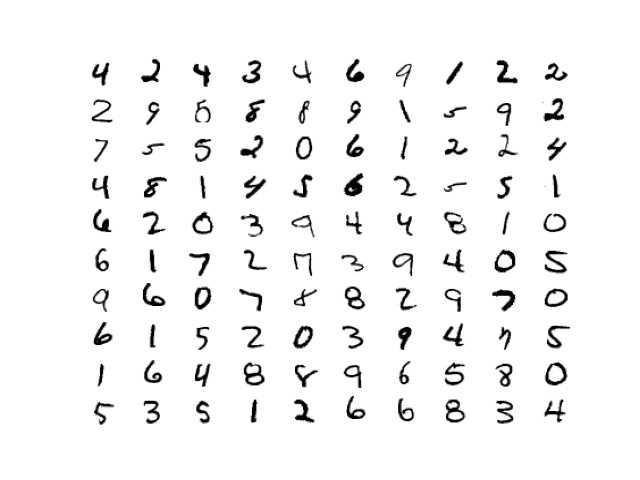 4 2 4 3 4 6 9 1 2 2
2 9 5 8 8 9 1 5 9 2
7 5 5 2 0 6 1 2 2 4
4 8 1 4 5 6 2 5 5 1
6 2 0 3 9 4 4 8 1 0
6 1 7 2 7 3 9 4 0 5
9 6 0 7 8 8 2 9 7 0
6 1 5 2 0 3 9 4 7 5
1 6 4 8 8 9 6 5 8 0
5 3 5 1 2 6 6 8 3 4